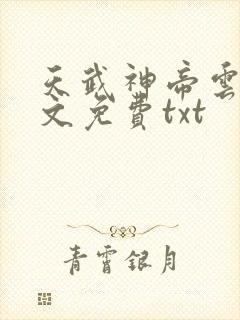 天武神帝雲
文免費txt
青霄銀月